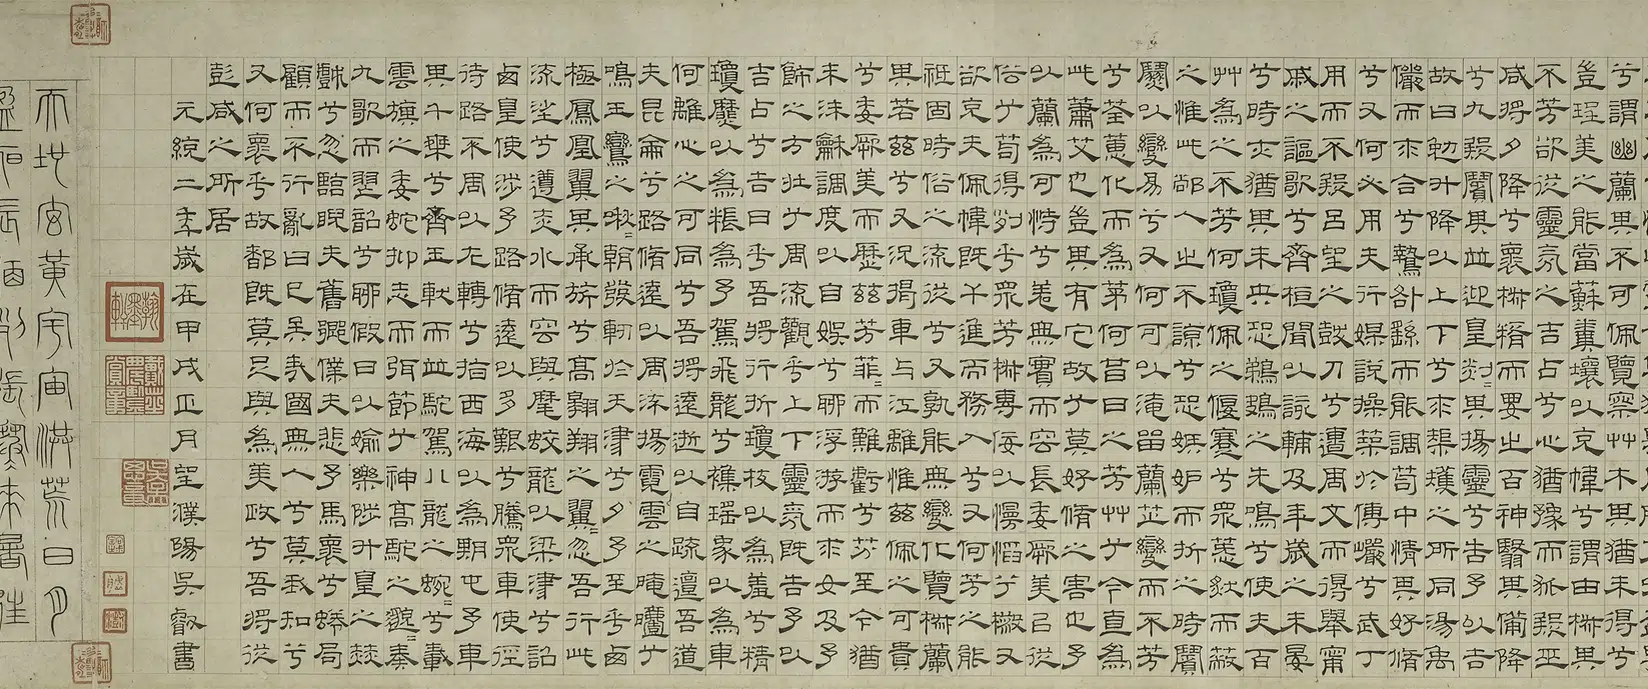 兮謂幽蘭其不可佩覽察艸木其猶未得兮
豈珵美之能當蘇糞壤以充幃兮謂申椒其
不芳欲從靈氛之吉占兮心猶豫而狐疑巫
咸將夕降兮褱椒糈而要之百神翳其備降
兮九疑繽其並迎皇剡=其揚靈兮告予以吉
故曰勉升降以上下兮求榘矱之所同湯禹
儼而求合兮摯咎繇而能調苟中情其好脩
兮又何必用夫行媒說操築於傅巖兮武丁
用而不疑呂望之鼓刀兮遭周文而得舉甯
戚之謳歌兮齊桓聞以該輔及年歲之未晏
兮時亦猶其未央恐鵜鴂之先鳴兮使夫百
艸為之不芳何瓊佩之偃蹇兮眾薆然而蔽
之惟此鄗人之不諒兮恐嫉妒而折之時繽
以變易兮又何可以淹留蘭芷變而不芳
兮荃蕙化而為茅何昔日之芳艸兮今直為
此蕭艾也豈其有它故兮莫好脩之害也予
以蘭為可恃兮羌無實而容長委厥美以從
俗兮苟得列乎眾芳椒專佞以慢慆兮樧又
欲充夫佩幃既干進而務入兮又何芳之能
祗固時俗之流從兮又孰能無變化覽椒蘭
其若茲兮又況揭車與江離惟茲佩之可貴
兮委厥美而歷茲芳菲=而難虧兮芬至今猶
未沬龢調度以自娛兮聊浮游而求女及予
飾之方壯兮周流觀乎上下靈氛既告予以
吉占兮吉日乎吾將行折瓊枝以為羞兮精
瓊爢以為粻為予駕飛龍兮襍瑤象以為車
何離心之可同兮吾將遠逝以自疏邅吾道
夫昆侖兮路脩遠以周流揚霓雲之晻曖兮
鳴玉鸞之啾=朝發軔於天津兮夕予至乎西
極鳳凰翼其承旂兮高翱翔之翼=忽吾行此
流沙兮遵赤水而容與麾蛟龍以梁津兮詔
西皇使涉予路脩遠以多艱兮騰眾車使徑
待路不周以左轉兮指西海以為期屯予車
其千乘兮齊玉軑而並馳駕八龍之蜿=兮載
雲旗之委蛇抑志而弭節兮神高馳之邈=奏
九歌而舞韶兮聊假日以媮樂陟升皇之赫
戲兮忽臨睨夫舊鄉僕夫悲予馬褱兮蜷局
顧而不行亂曰已矣哉國無人兮莫我知兮
又何褱乎故都既莫足與為美政兮吾將從
彭咸之所居
元統二年歲在甲戌正月望濮陽吳叡書
天地玄黃宇宙洪荒日月
盈昃辰宿列張寒來暑往